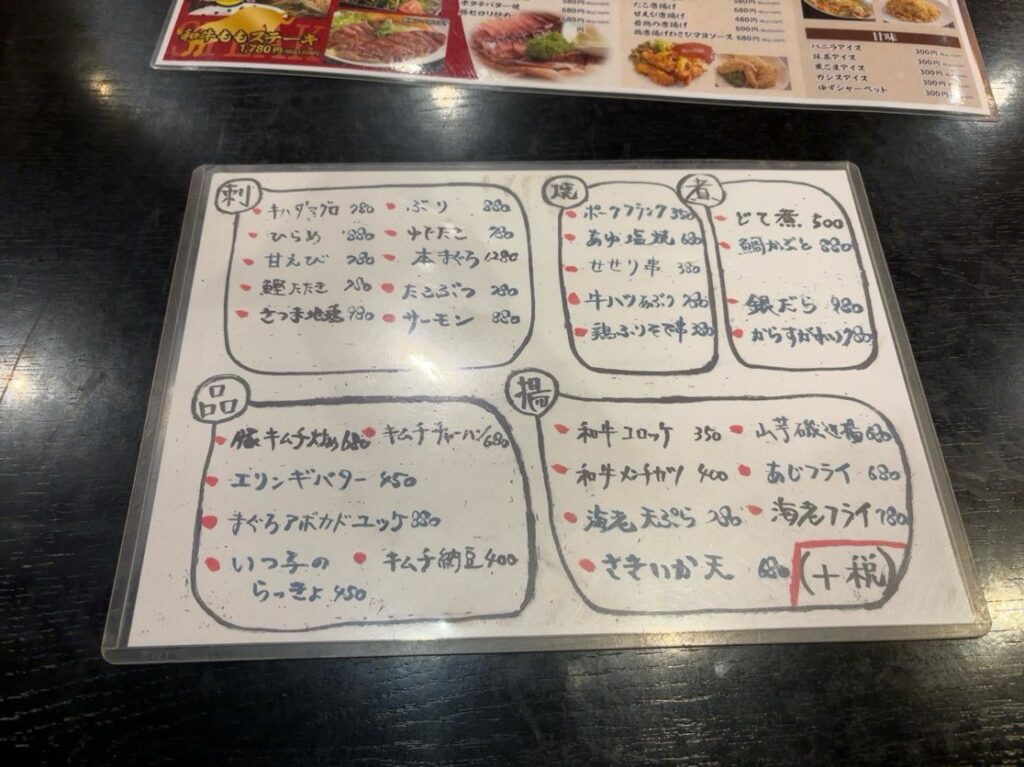 和牛ももステーキ
1,780円
580円
ホタテバター焼
680円
セロリ炒め
680円
たこ唐揚げ
580円
甘えび唐揚げ
480円
若鶏の唐揚げ
600円
鶏唐揚げわさびマヨソース
680円
甘味
バニラアイス 300円
抹茶アイス 300円
黒ごまアイス 300円
カシスアイス 300円
ゆずシャーベット 300円
刺
キハダマグロ 780
ひらめ 880
甘えび 780
鰹たたき 780
さつま地鶏 980
ぶり 880
ゆでたこ 780
本まぐろ 1280
たこぶつ 780
サーモン 880
焼
ポークフランク 350
あゆ塩焼 680
せせり串 380
牛ハツあぶり 780
鶏ふりそで串 380
煮
どて煮 500
鯛かぶと 880
銀だら 980
からすがれい 980
品
豚キムチ炒め 680
キムチチャーハン 680
エリンギバター 450
まぐろアボカドユッケ 880
いつ子の
らっきょ 450
キムチ納豆 400
揚
和牛コロッケ 350
山芋磯辺揚 680
和牛メンチカツ 400
あじフライ 680
海老天ぷら 780
海老フライ 780
さきいか天 680
(+税)